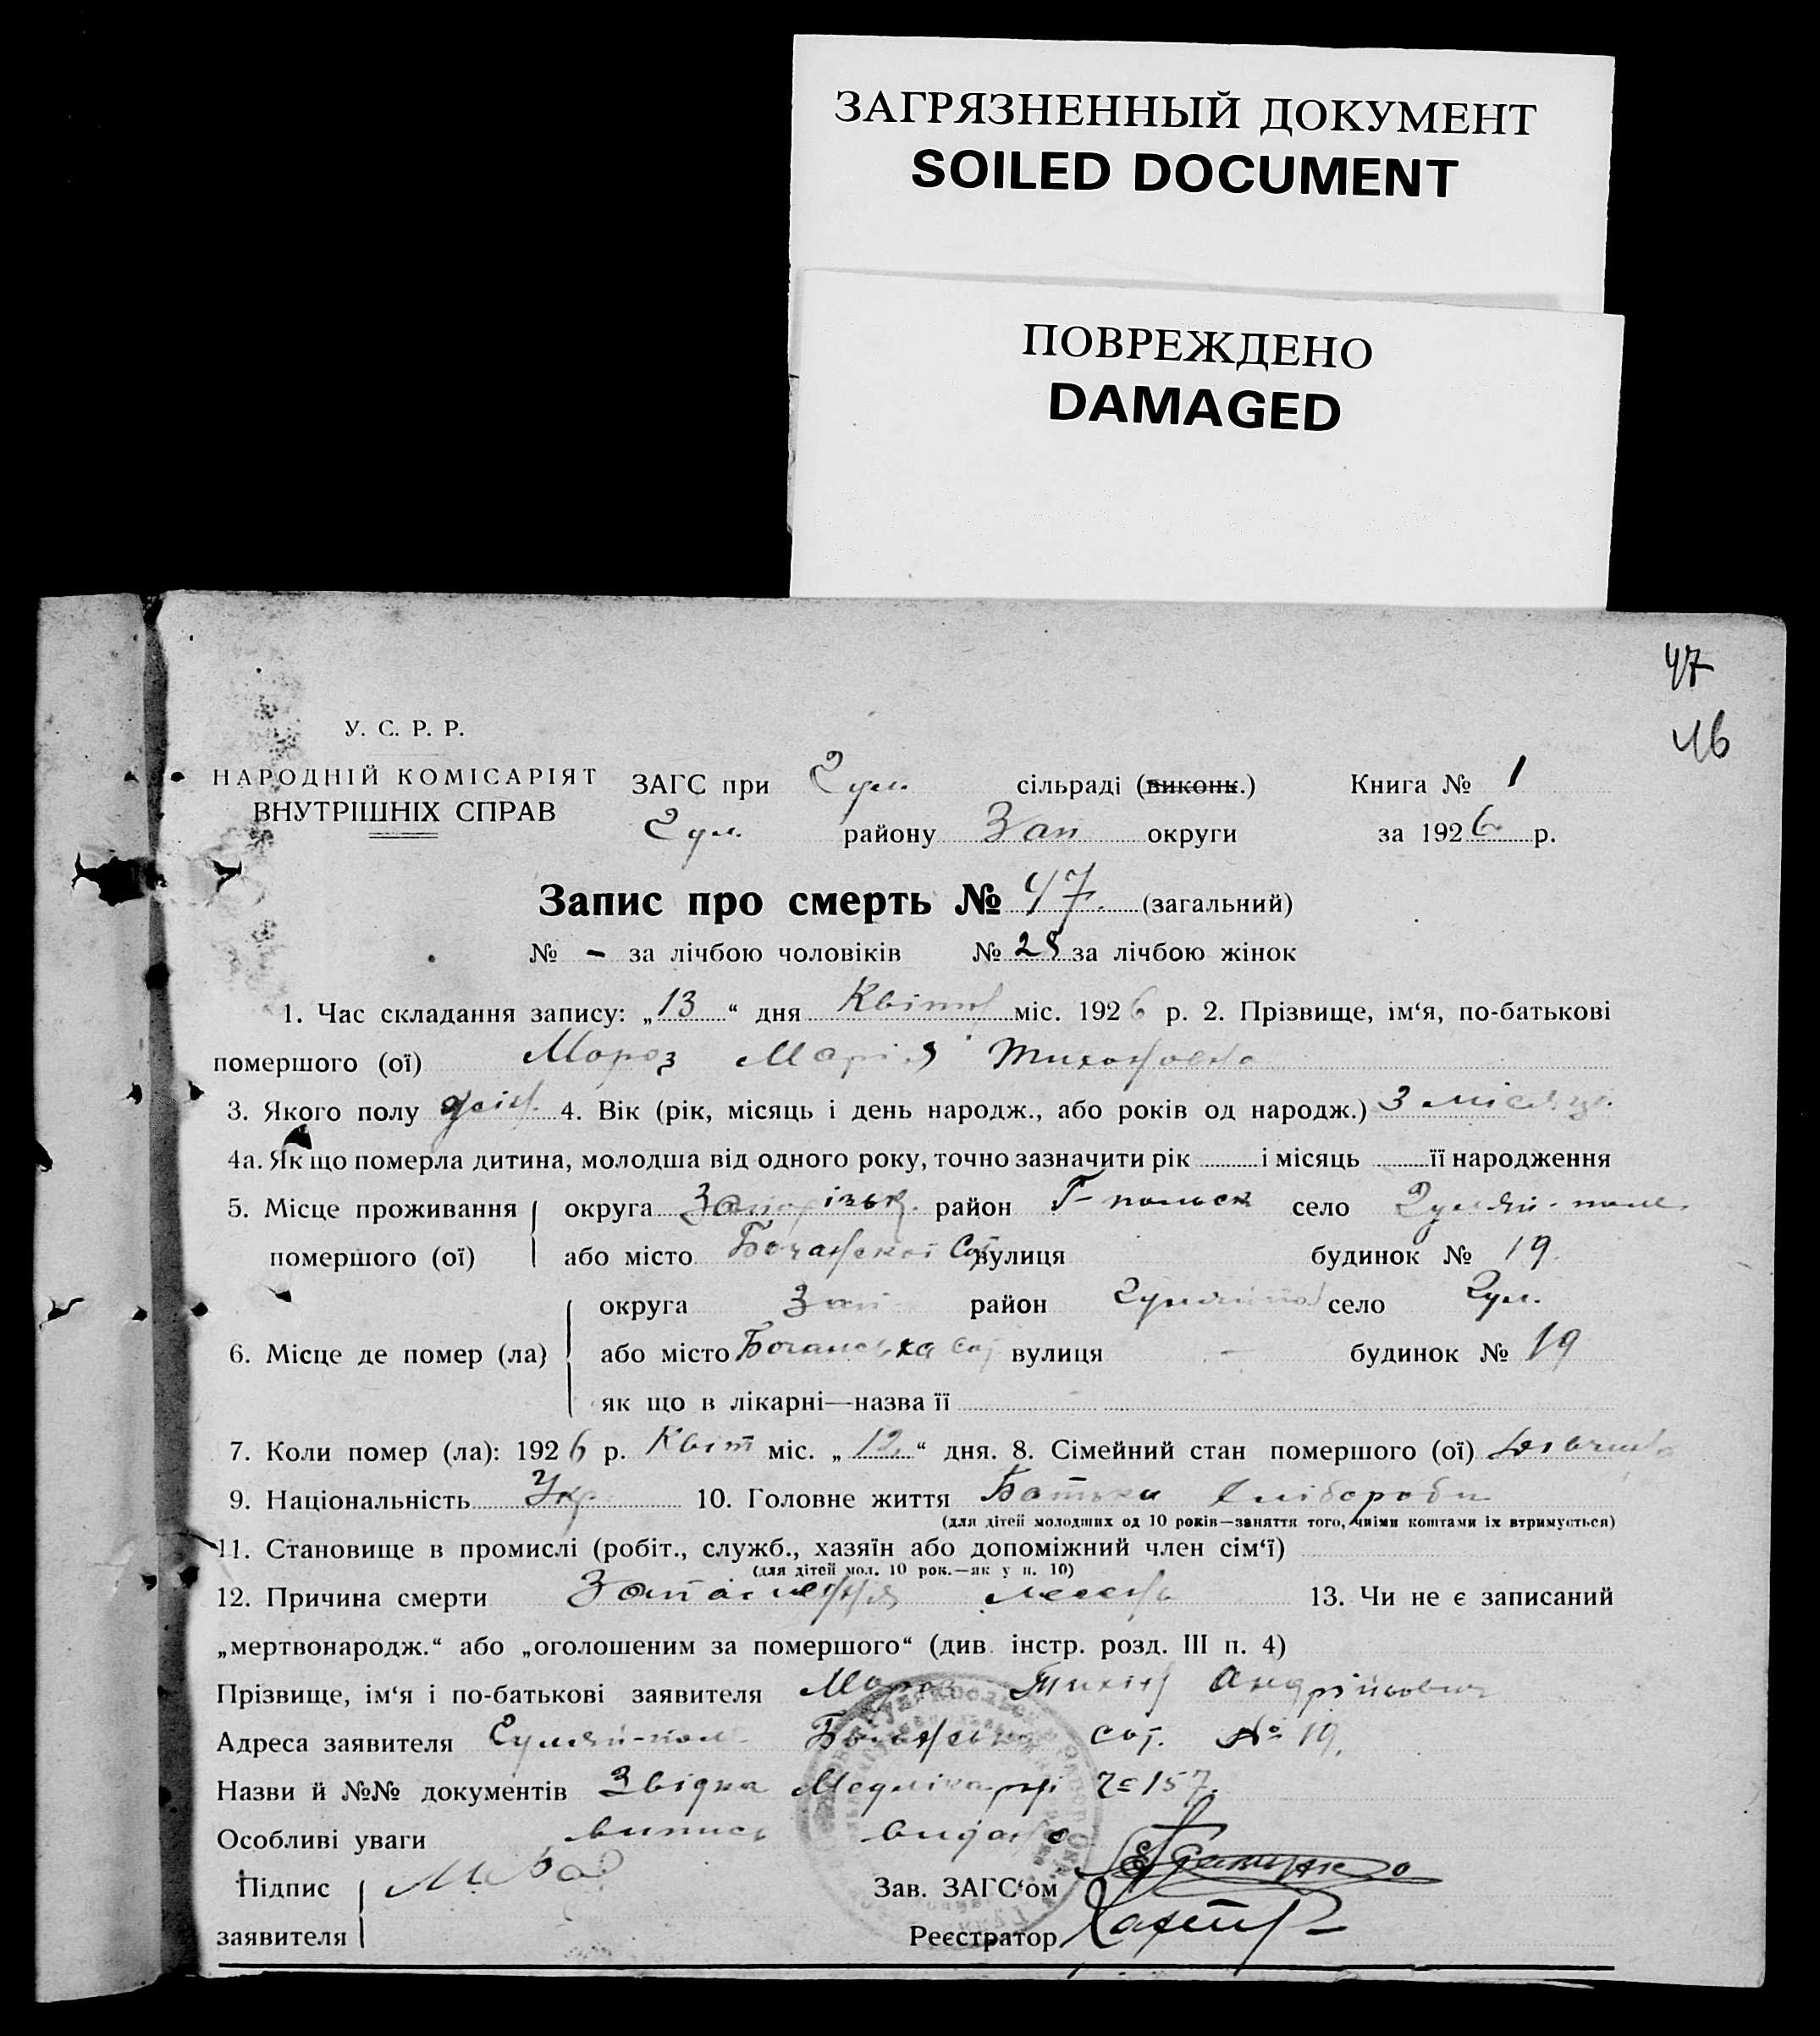 ЗАГРЯЗНЕННЫЙ ДОКУМЕНТ
SOILED DOCUMENT
ПОВРЕЖДЕНО
DAMAGED
47
46
У. С. Р. Р.
НАРОДНІЙ КОМІСАРІЯТ
ВНУТРІШНІХ СПРАВ
ЗАГС при Гул. сільраді (виконк.) Книга № 1
Гул. району Зап округи за 1926 р.
Запис про смерть № 47. (загальний)
№ - за лічбою чоловіків № 28 за лічбою жінок
1. Час складання запису: „13“ дня Квітн міс. 1926 р. 2. Прізвище, ім‘я, по-батькові
помершого (ої) Мороз Марія Тихоновна
3. Якого полу жін. 4. Вік (рік, місяць і день народж., або років од народж.) 3 місяц.
4а. Як що померла дитина, молодша від одного року, точно зазначити рік і місяць її народження
5. Місце проживання округа Запорізьк. район Г-польск село Гуляй-поле
помершого (ої) або місто вулиця будинок № 19
округа Зап район село Гул.
6. Місце де помер (ла) або місто вулиця - будинок № 19
як що в лікарні—назва її
7. Коли помер (ла): 1926 р. Квіт міс. „12“ дня. 8. Сімейний стан помершого (ої)
9. Національність Укр. 10. Головне життя Батьки хлібороби
(для дітей молодших од 10 років—заняття того, чиїми коштами їх втримується)
11. Становище в промислі (робіт., служб., хазяїн або допоміжний член сім‘ї)
(для дітей мол. 10 рок.—як у п. 10)
12. Причина смерти Запалення легень 13. Чи не є записаний
„мертвонародж.“ або „оголошеним за помершого“ (див. інстр. розд. III п. 4)
Прізвище, ім‘я і по-батькові заявителя Мороз Тихін Андрійович
Адреса заявителя Гуляй-поле сот. № 19.
Назви й №№ документів Звідка № 157.
Особливі уваги випись видано
Підпис Зав. ЗАГС‘ом
заявителя Реєстратор